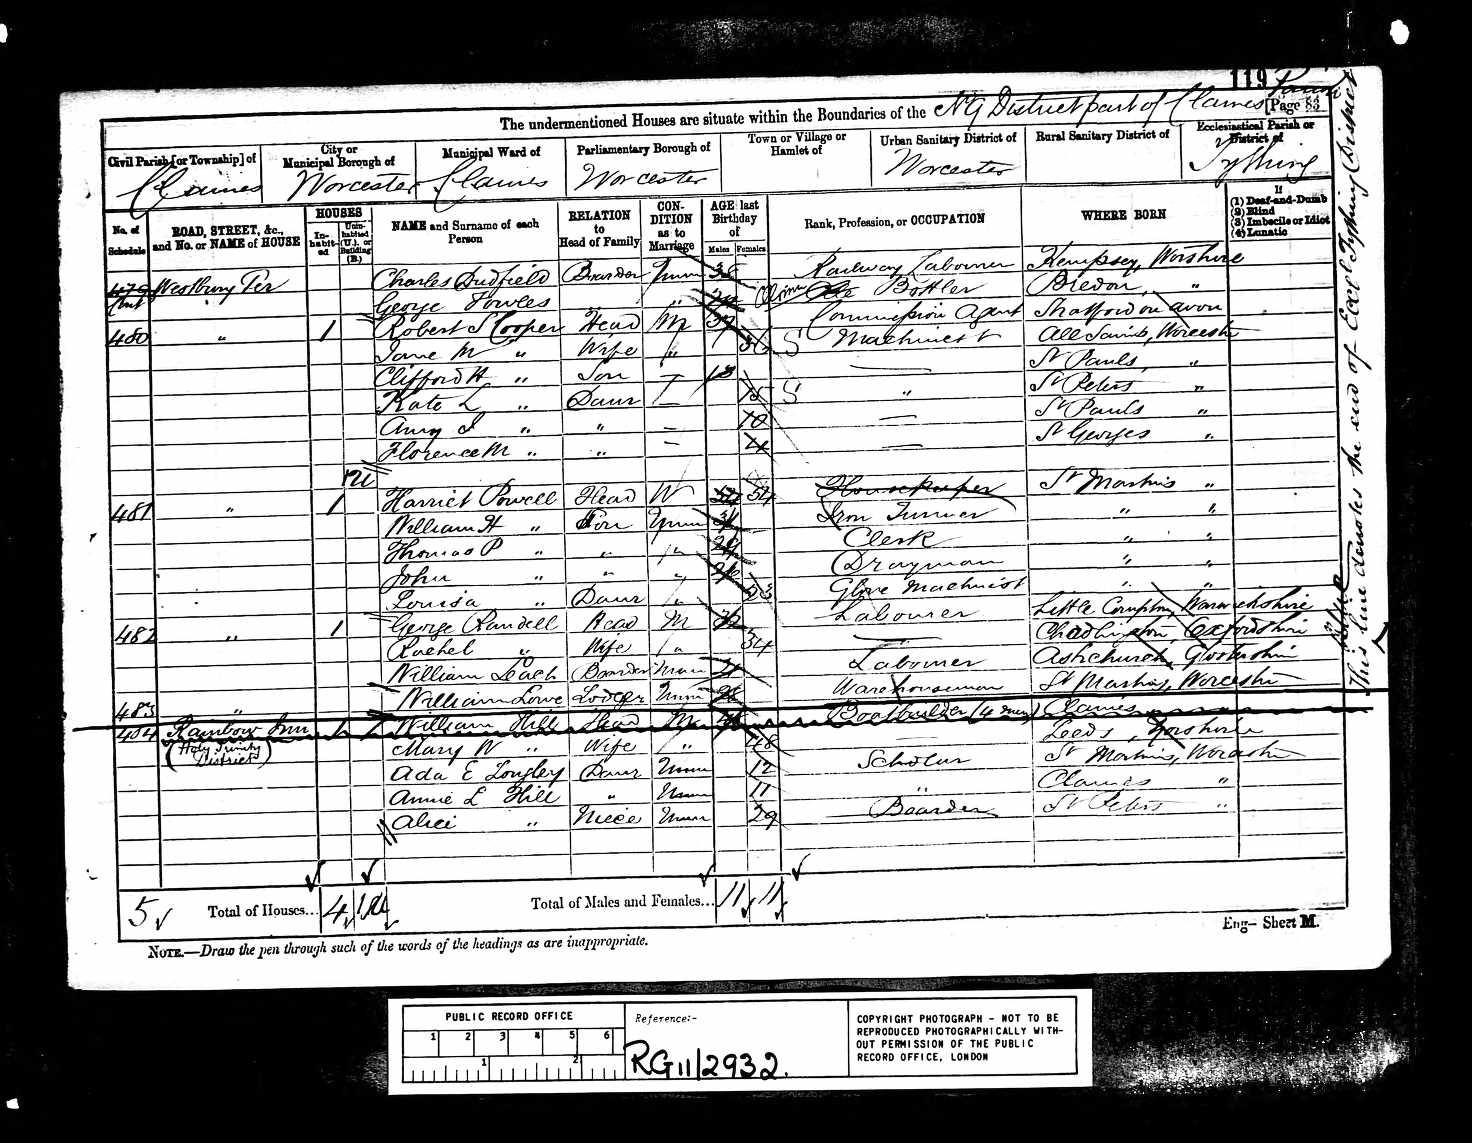 119
The undermentioned Houses are situate within the Boundaries of the No 9 District part of Claines Parish [Page 83
Civil Parish [or Township] of Claines
City or Municipal Borough of Worcester
Municipal Ward of Claines
Parliamentary Borough of Worcester
Town or Village or Hamlet of
Urban Sanitary District of Worcester
Rural Sanitary District of
Ecclesiastical Parish or District of Tything
No. of Schedule
ROAD, STREET, &c., and No. or NAME of HOUSE
HOUSES
In-habit-ed
Unin-habited (U.), or Building (B.)
NAME and Surname of each Person
RELATION to Head of Family
CON-DITION as to Marriage
AGE last Birthday of
Males Females
Rank, Profession, or OCCUPATION
WHERE BORN
If
(1) Deaf-and-Dumb
(2) Blind
(3) Imbecile or Idiot
(4) Lunatic
479 Cont Westbury Ter Charles Dudfield Boarder Unm 38 Railway Labourer Kempsey, Worshire
" George Fowles " " Bottler Bredon, "
480 " 1 Robert S Cooper Head M 37 Commission Agent Stratford on avon
Jane M " Wife " 36 S Machinist All Saints, Worcester
Clifford H " Son — 13 — St Pauls, "
Kate L " Daur — 15 S " St Peters "
Amy " " — 10 — St Pauls "
Florence M " " — 4 — St Georges "
1U
481 " 1 Harriet Powell Head W 54 54 Housekeeper St Martins "
William H " Son Unm 31 Iron Turner " "
Thomas P " " " 29 Clerk " "
John " " " 26 Drayman " "
Louisa " Daur " 23 Glove Machinist " "
482 " 1 George Randell Head M 32 Labourer Little Compton, Warwickshire
Rachel " Wife " 34 — Chadlington, Oxfordshire
William Leach Boarder Unm 21 Labourer Ashchurch, Glostershire
483 " William Lowe Lodger Unm Warehouseman St Martins, Worcester
484 Rainbow Inn 1 William Hill Head M Boatbuilder (4 men) Claines
(Holy Trinity District) Mary W " Wife " 48 — Leeds, Yorshire
Ada E Longley Daur Unm 12 Scholar St Martins, Worcester
Annie L Hill " Unm 11 " Claines "
Alice " Niece Unm 29 Boarder St Peters "
5 Total of Houses... 4 1U Total of Males and Females... 11 11
NOTE.—Draw the pen through such of the words of the headings as are inappropriate.
Eng— Sheet M.
This line denotes the end of Eccl Tything District
PUBLIC RECORD OFFICE
1 2 3 4 5 6
1 2
Reference:-
RG 11/2932.
COPYRIGHT PHOTOGRAPH – NOT TO BE
REPRODUCED PHOTOGRAPHICALLY WITH-
OUT PERMISSION OF THE PUBLIC
RECORD OFFICE, LONDON